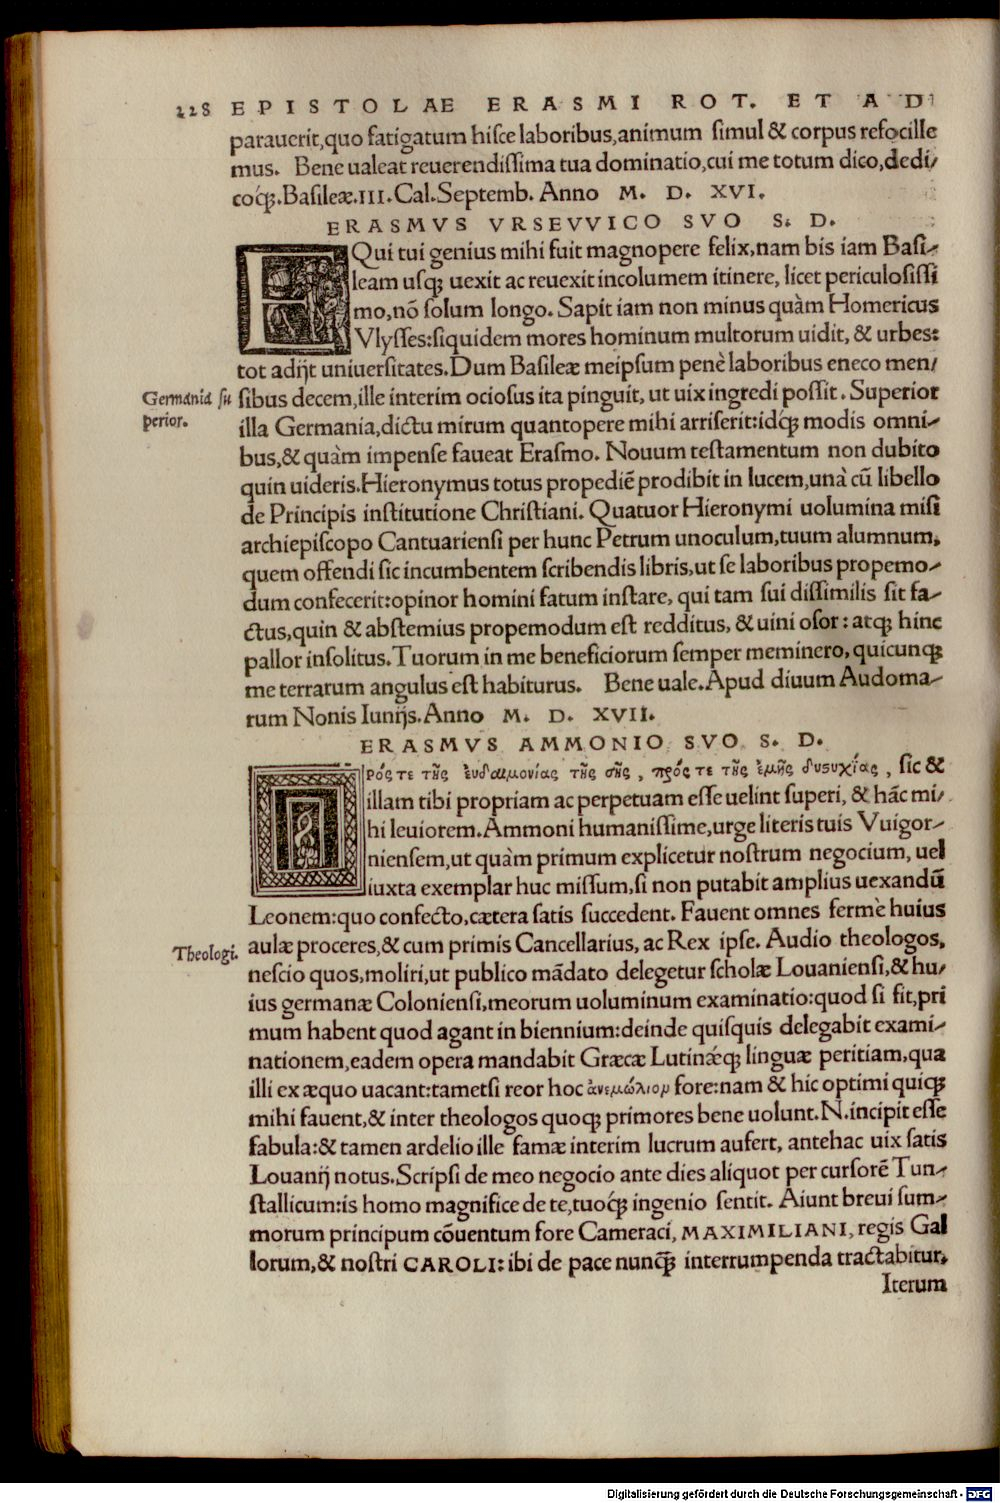 228 EPISTOLAE ERASMI ROT. ET AD
parauerit,quo fatigatum hiſce laboribus,animum ſimul & corpus refocille
mus. Bene ualeat reuerendiſſima tua dominatio,cui me totum dico,dedi/
coq́ꝫ.Baſileæ.III.Cal.Septemb. Anno M. D. XVI.
ERASMVS VRSEVVICO SVO S. D.
EQui tui genius mihi fuit magnopere felix,nam bis iam Baſi-
leam uſqꝫ uexit ac reuexit incolumem itinere, licet periculoſiſſi
mo,nõ ſolum longo. Sapit iam non minus quàm Homericus
Vlyſſes:ſiquidem mores hominum multorum uidit, & urbes:
tot adijt uniuerſitates.Dum Baſileæ meipſum penè laboribus eneco men/
Germania ſu
perior.
ſibus decem,ille interim ocioſus ita pinguit, ut uix ingredi poſſit. Superior
illa Germania,dictu mirum quantopere mihi arriſerit:idq́ꝫ modis omni-
bus,& quàm impenſe faueat Eraſmo. Nouum teſtamentum non dubito
quin uideris.Hieronymus totus propediẽ prodibit in lucem,unà cũ libello
de Principis inſtitutione Chriſtiani. Quatuor Hieronymi uolumina miſi
archiepiſcopo Cantuarienſi per hunc Petrum unoculum,tuum alumnum,
quem offendi ſic incumbentem ſcribendis libris,ut ſe laboribus propemo-
dum confecerit:opinor homini fatum inſtare, qui tam ſui diſſimilis ſit fa-
ctus,quin & abſtemius propemodum eſt redditus, & uini oſor: atqꝫ hinc
pallor inſolitus.Tuorum in me beneficiorum ſemper meminero, quicunqꝫ
me terrarum angulus eſt habiturus. Bene uale.Apud diuum Audoma-
rum Nonis Iunijs.Anno M. D. XVII.
ERASMVS AMMONIO SVO S. D.
Πρός τε τῆς ἐυδαιμονίας τῆς σῆς, πρός τε τῆς ἐμῆς δυςυχίας, ſic &
illam tibi propriam ac perpetuam eſſe uelint ſuperi, & hãc mi/
hi leuiorem.Ammoni humaniſſime,urge literis tuis Vuigor-
nienſem,ut quàm primum explicetur noſtrum negocium, uel
iuxta exemplar huc miſſum,ſi non putabit amplius uexandũ
Leonem:quo confecto,cætera ſatis ſuccedent. Fauent omnes fermè huius
Theologi.
aulæ proceres,& cum primis Cancellarius, ac Rex ipſe. Audio theologos,
neſcio quos,moliri,ut publico mãdato delegetur ſcholæ Louanienſi,& hu/
ius germanæ Colonienſi,meorum uoluminum examinatio:quod ſi fit,pri
mum habent quod agant in biennium:deinde quiſquis delegabit exami-
nationem,eadem opera mandabit Græcæ Lutinǽqꝫ linguæ peritiam,qua
illi ex æquo uacant:tametſi reor hoc ἀνεμώλιον fore:nam & hic optimi quiqꝫ
mihi fauent,& inter theologos quoqꝫ primores bene uolunt.N.incipit eſſe
fabula:& tamen ardelio ille famæ interim lucrum aufert, antehac uix ſatis
Louanij notus.Scripſi de meo negocio ante dies aliquot per curſorẽ Tun-
ſtallicum:is homo magnifice de te,tuoq́ꝫ ingenio ſentit. Aiunt breui ſum-
morum principum cõuentum fore Cameraci, MAXIMILIANI, regis Gal
lorum,& noſtri CAROLI: ibi de pace nunq̃ꝫ interrumpenda tractabitur.
Iterum
Digitalisierung gefördert durch die Deutsche Forschungsgemeinschaft - DFG